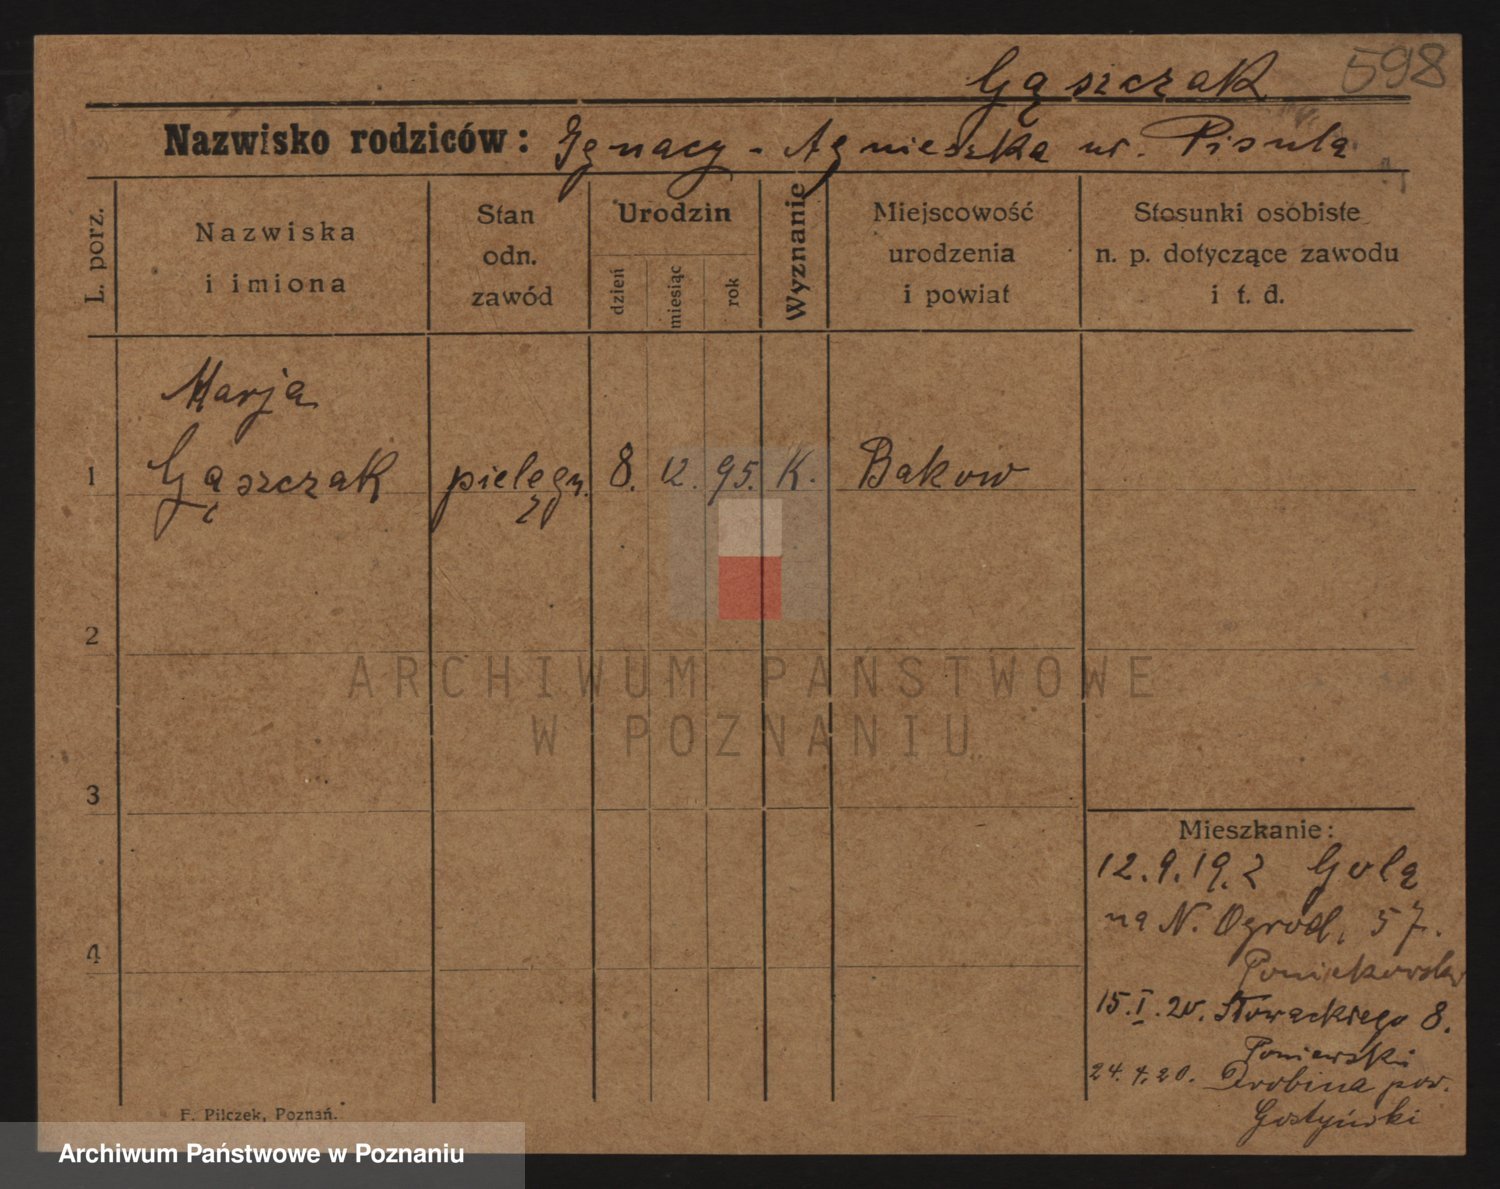 Gąszczak 598
Nazwisko rodziców: Ignacy - Agnieszka ur. Pisula
L. porz.
Nazwiska
i imiona
Stan
odn.
zawód
Urodzin
dzień
miesiąc
rok
Wyznanie
Miejscowość
urodzenia
i powiat
Stosunki osobiste
n. p. dotyczące zawodu
i t. d.
Marja
1 Gąszczak pielęgn. 8. 12. 95. K. Bakow
2
ARCHIWUM PAŃSTWOWE
W POZNANIU
3
Mieszkanie:
12.9.19. z Golą
na N. Ogrod. 57.
4
15.I.20. Słowackiego 8.
24.4.20. Drobina pow.
Gostyński
F. Pilczek, Poznań.
Archiwum Państwowe w Poznaniu